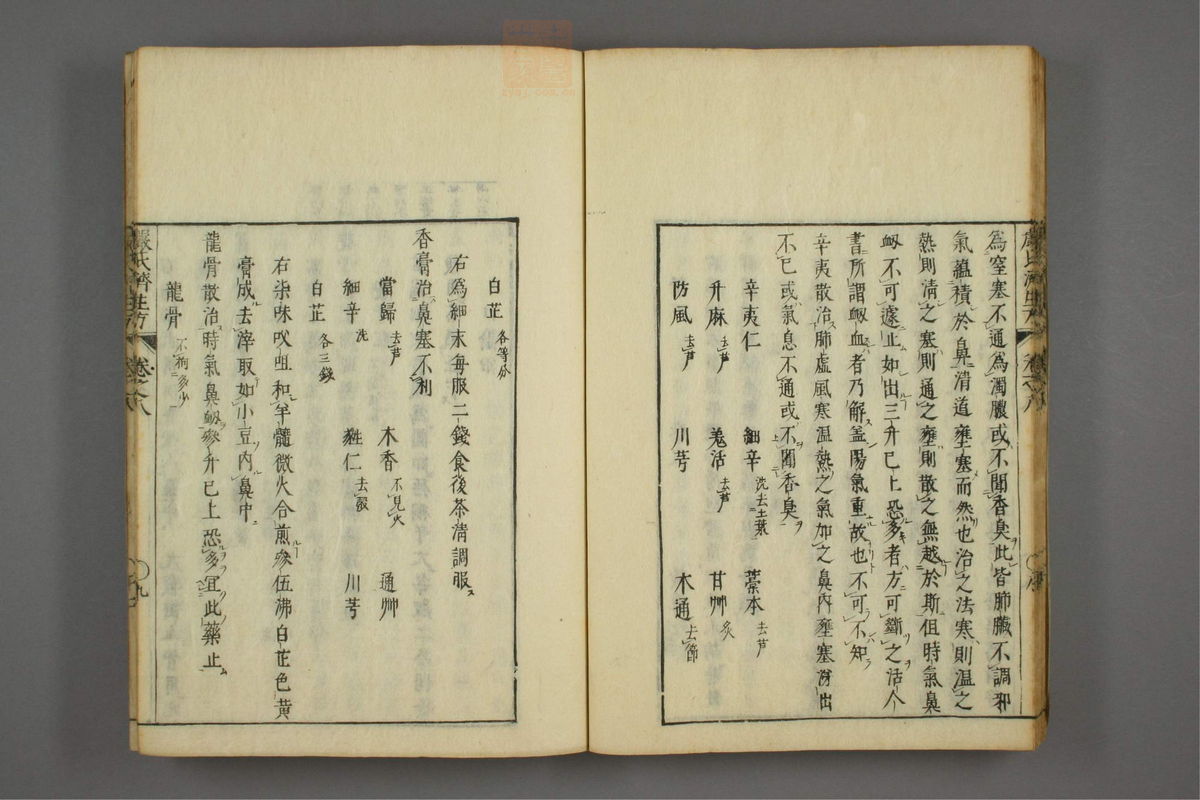 為窒塞不通為濁膿或不聞香臭此皆肺臟不調邪
氣蘊積於鼻清道壅塞而然也治之法寒則温之
熱則清之塞則通之壅則散之無越於斯但時氣鼻
衂不可遽止如出三升已上恐多者方可斷之活人
書所謂衂血者乃解盖陽氣重故也不可不知
辛夷散治肺虛風寒濕熱之氣加之鼻内壅塞涕出
不已或氣息不通或不聞香臭
辛夷仁 細辛洗去土葉 藁本去芦
升麻去芦 羗活去芦 甘艸炙
防風去芦 川芎 木通去節
白芷各等分
右為細末每服二錢食後茶清調服
香膏治鼻塞不利
當歸去芦 木香不見火 通艸
細辛洗 蕤仁去殻 川芎
白芷各三錢
右柒味㕮咀和羊髓微火合煎叄伍沸白芷色黄
膏成去滓取如小豆内鼻中
龍骨散治時氣鼻衂叄升已上恐多宜此藥止
龍骨不拘多少
嚴氏濟生方 卷之八